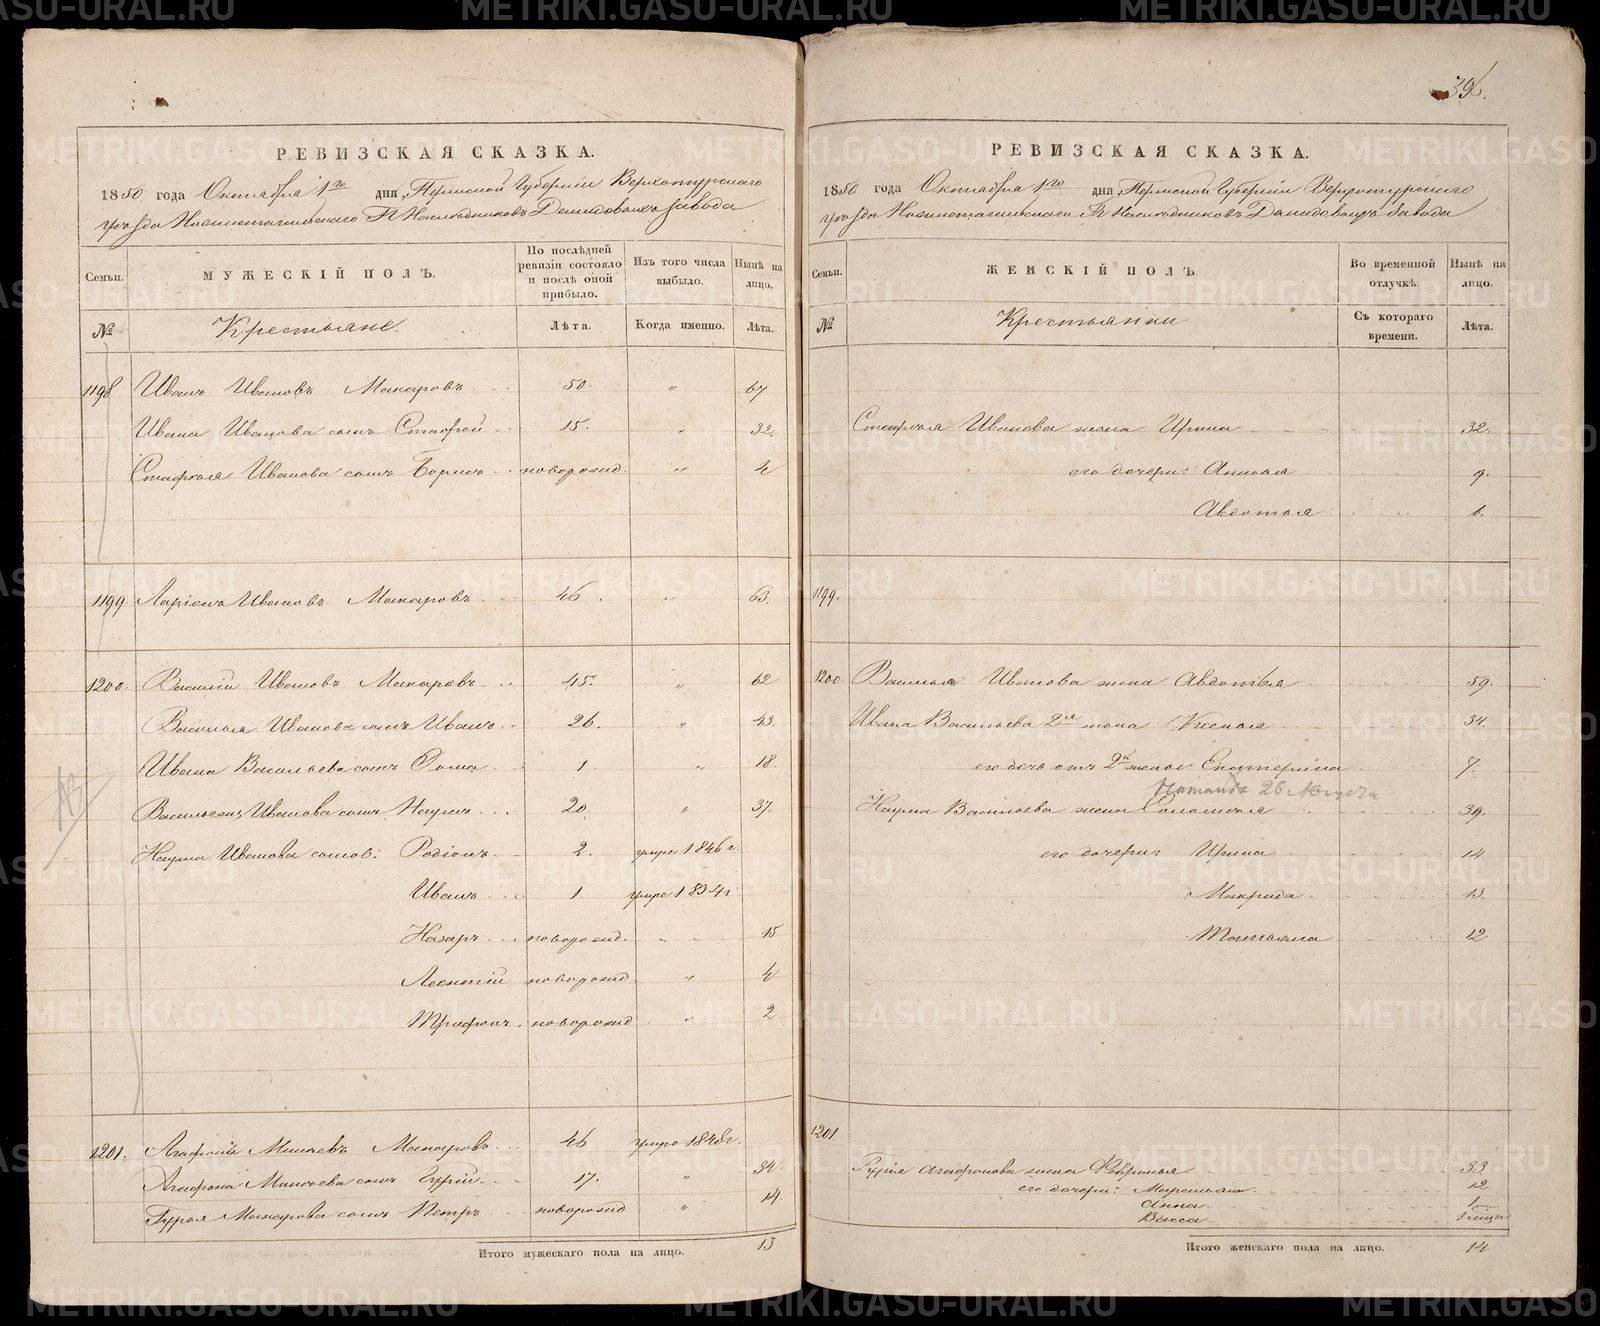 396.
РЕВИЗСКАЯ СКАЗКА.
1850 года Октября 1го дня, Пермской Губернии Верхотурского
уезда Нижнетагильского Гг Наследников Демидовых завода
Семьи. МУЖЕСКІЙ ПОЛЪ. По послѣдней ревизіи состояло и послѣ оной прибыло. Изъ того числа выбыло. Нынѣ на лицо.
№ Крестьяне. Лѣта. Когда именно. Лѣта.
1198 Иванъ Ивановъ Макаровъ 50. " 67
Ивана Иванова сынъ Стафей 15. " 32.
Стафея Иванова сынъ Борисъ новорожд. " 4
1199 Ларіонъ Ивановъ Макаровъ 46. " 63.
1200. Василій Ивановъ Макаровъ 45. " 62
Василья Иванова сынъ Иванъ 26. " 43.
Ивана Васильева сынъ Фома 1. " 18
Васильевъ Иванова сынъ Наумъ 20. " 37.
Наума Иванова сыновья: Родіонъ 2. умре 1846 г.
Иванъ 1. умре 1834 г
Назаръ новорожд. " 15
Леонтій новорожд. " 4
Трифонъ новорожд " 2
1201. Агафонъ Макаровъ 46 умре 1848 г.
Агафона сынъ Гурій 17. " 34.
Гурья Макарова сынъ Петръ новорожд " 14.
Итого мужескаго пола на лицо. 13
РЕВИЗСКАЯ СКАЗКА.
1850 года Октября 1го дня, Пермской Губернии Верхотурского
уезда Нижнетагильского Гг Наследников Демидовых завода
Семьи. ЖЕНСКІЙ ПОЛЪ. Во временной отлучкѣ. Нынѣ на лицо.
№ Крестьянки Съ котораго времени. Лѣта.
Стафея Иванова жена Ирина 32.
его дочери: Анисья 9.
Авдотья 1.
1199.
1200 Василья Иванова жена Авдотья 59.
Ивана Васильева 2я жена Ксенья 34.
его дочь отъ 2й жены Екатерина 7.
26 Августа
Наума Васильева жена Соломонья 39.
его дочери: Ирина 14.
Макрида 13.
Татьяна 12
1201.
Гурія Агафонова жена Февронья 33
его дочери: Маремьяна 12
Анна 1
Васса
Итого женскаго пола на лицо. 14
METRIKI.GASO-URAL.RU